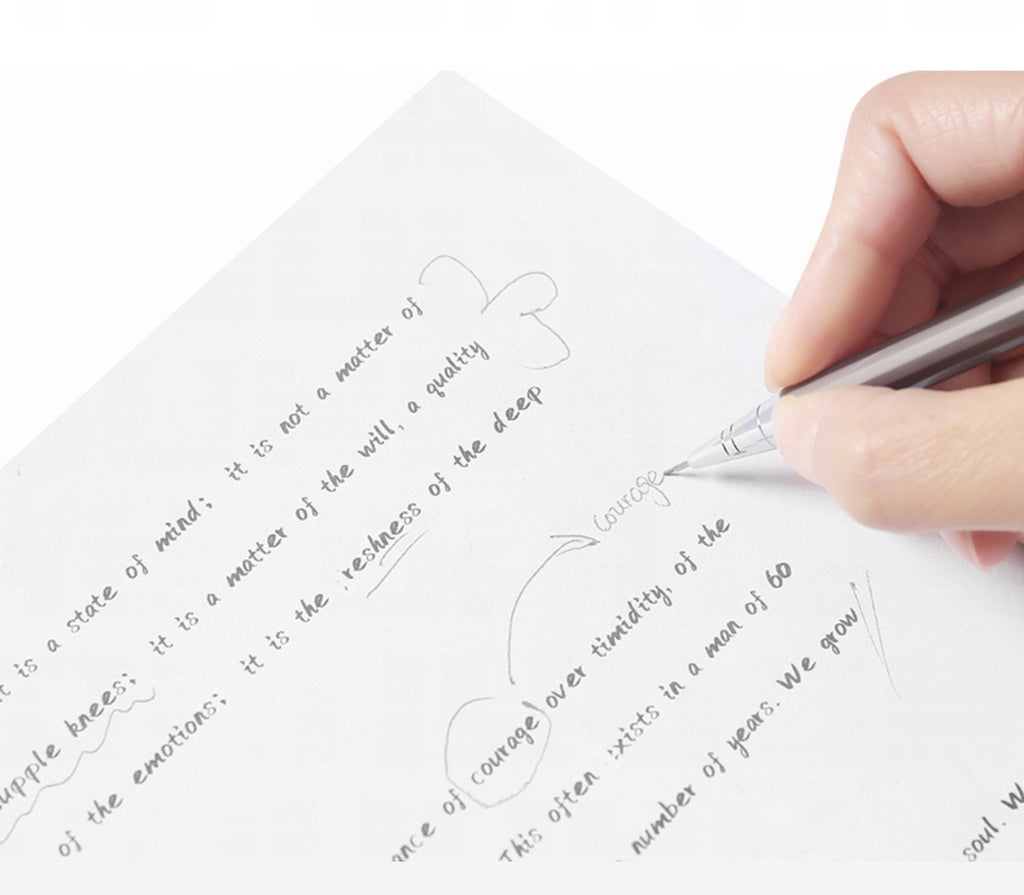 is a state of mind; it is not a matter of
supple knees; it is a matter of the will, a quality
of the emotions; it is the reshness of the deep
courage
ance of courage over timidity, of the
This often xists in a man of 60
number of years. We grow
soul. W